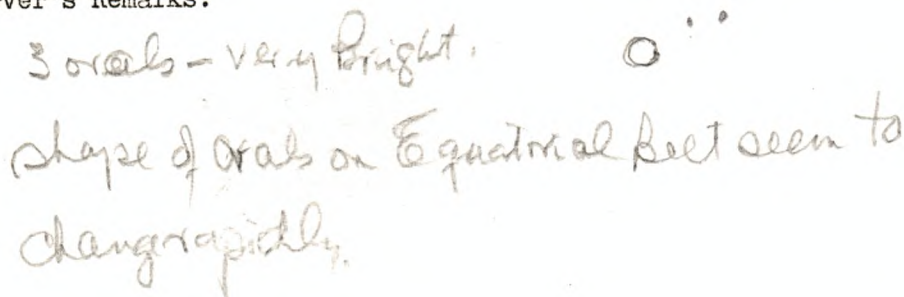 ver's Remarks:
3 ovals - very Bright.
shape of ovals on Equatorial Belt seem to
change rapidly.